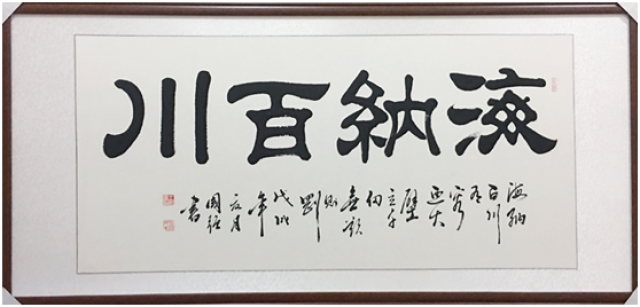 海納百川
海納
百川有
容
迺大
壁
立千
仞
無欲
則
剛
戊戌
年
月
國
書